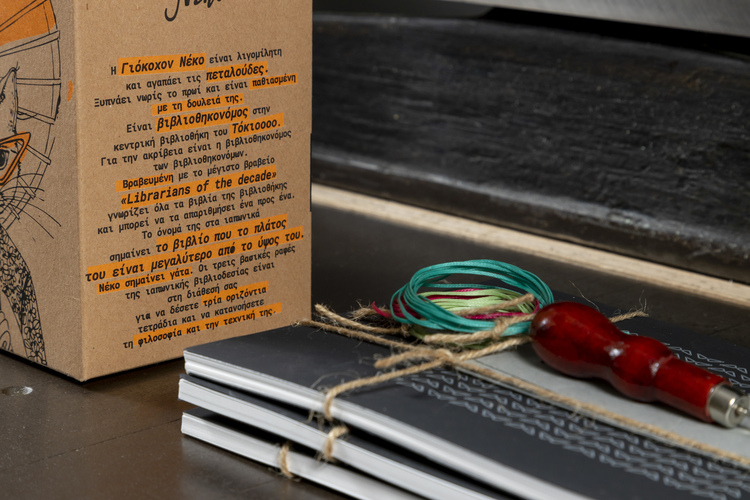 Η Γιόκοχον Νέκο είναι λιγομίλητη
και αγαπάει τις πεταλούδες.
Ξυπνάει νωρίς το πρωί και είναι παθιασμένη
με τη δουλειά της.
Είναι βιβλιοθηκονόμος στην
κεντρική βιβλιοθήκη του Τόκιοοοο.
Για την ακρίβεια είναι η βιβλιοθηκονόμος
των βιβλιοθηκονόμων.
Βραβευμένη με το μέγιστο βραβείο
«Librarians of the decade»
γνωρίζει όλα τα βιβλία της βιβλιοθήκης
και μπορεί να τα απαριθμήσει ένα προς ένα.
Το όνομά της στα ιαπωνικά
σημαίνει το βιβλίο που το πλάτος
του είναι μεγαλύτερο από το ύψος του.
Νέκο σημαίνει γάτα. Οι τρεις βασικές ραφές
της ιαπωνικής βιβλιοδεσίας είναι
στη διάθεσή σας
για να δέσετε τρία οριζόντια
τετράδια και να κατανοήσετε
τη φιλοσοφία και την τεχνική της.